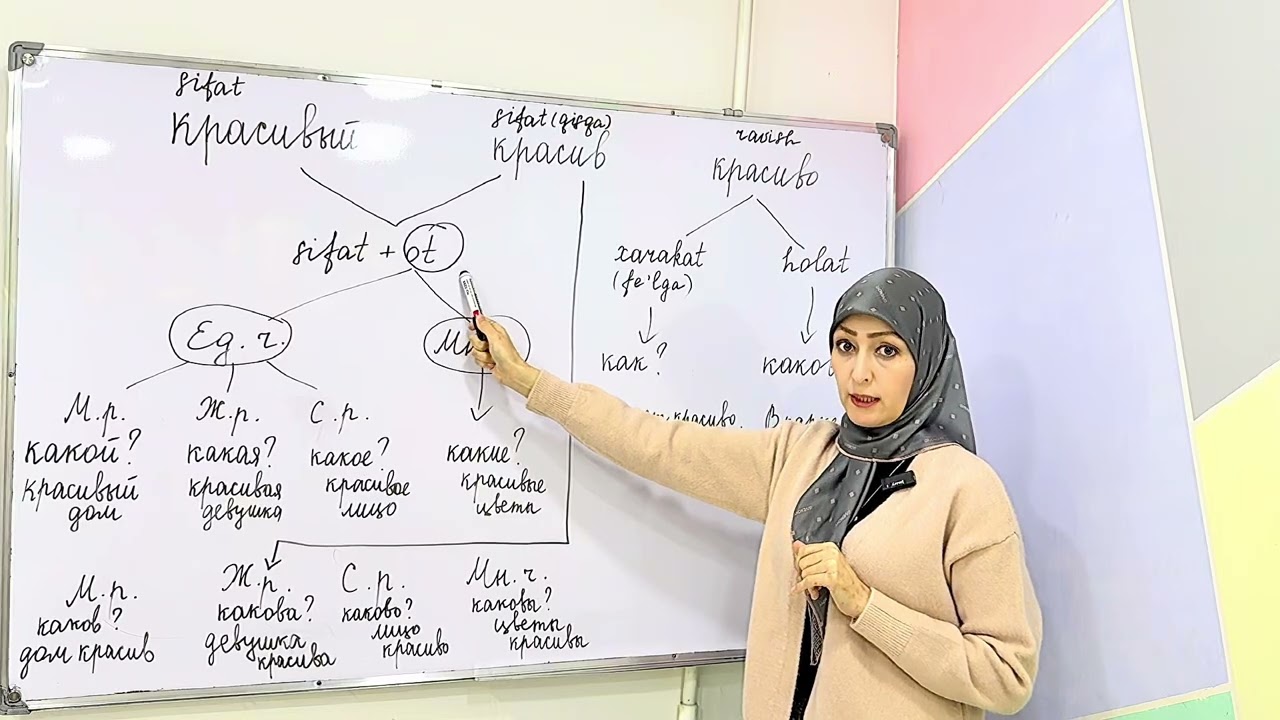 sifat
красивый
sifat (qisqa)
красив
ravish
красиво
sifat + ot
xarakat
(fe'lga)
holat
как?
Ед. ч.
М.р.
какой?
красивый
дом
Ж.р.
какая?
красивая
девушка
С.р.
какое?
красивое
лицо
какие?
красивые
цветы
красиво.
М.р.
каков?
дом красив
Ж.р.
какова?
девушка
красива
С.р.
каково?
лицо
красиво
Мн.ч.
каковы?
цветы
красивы